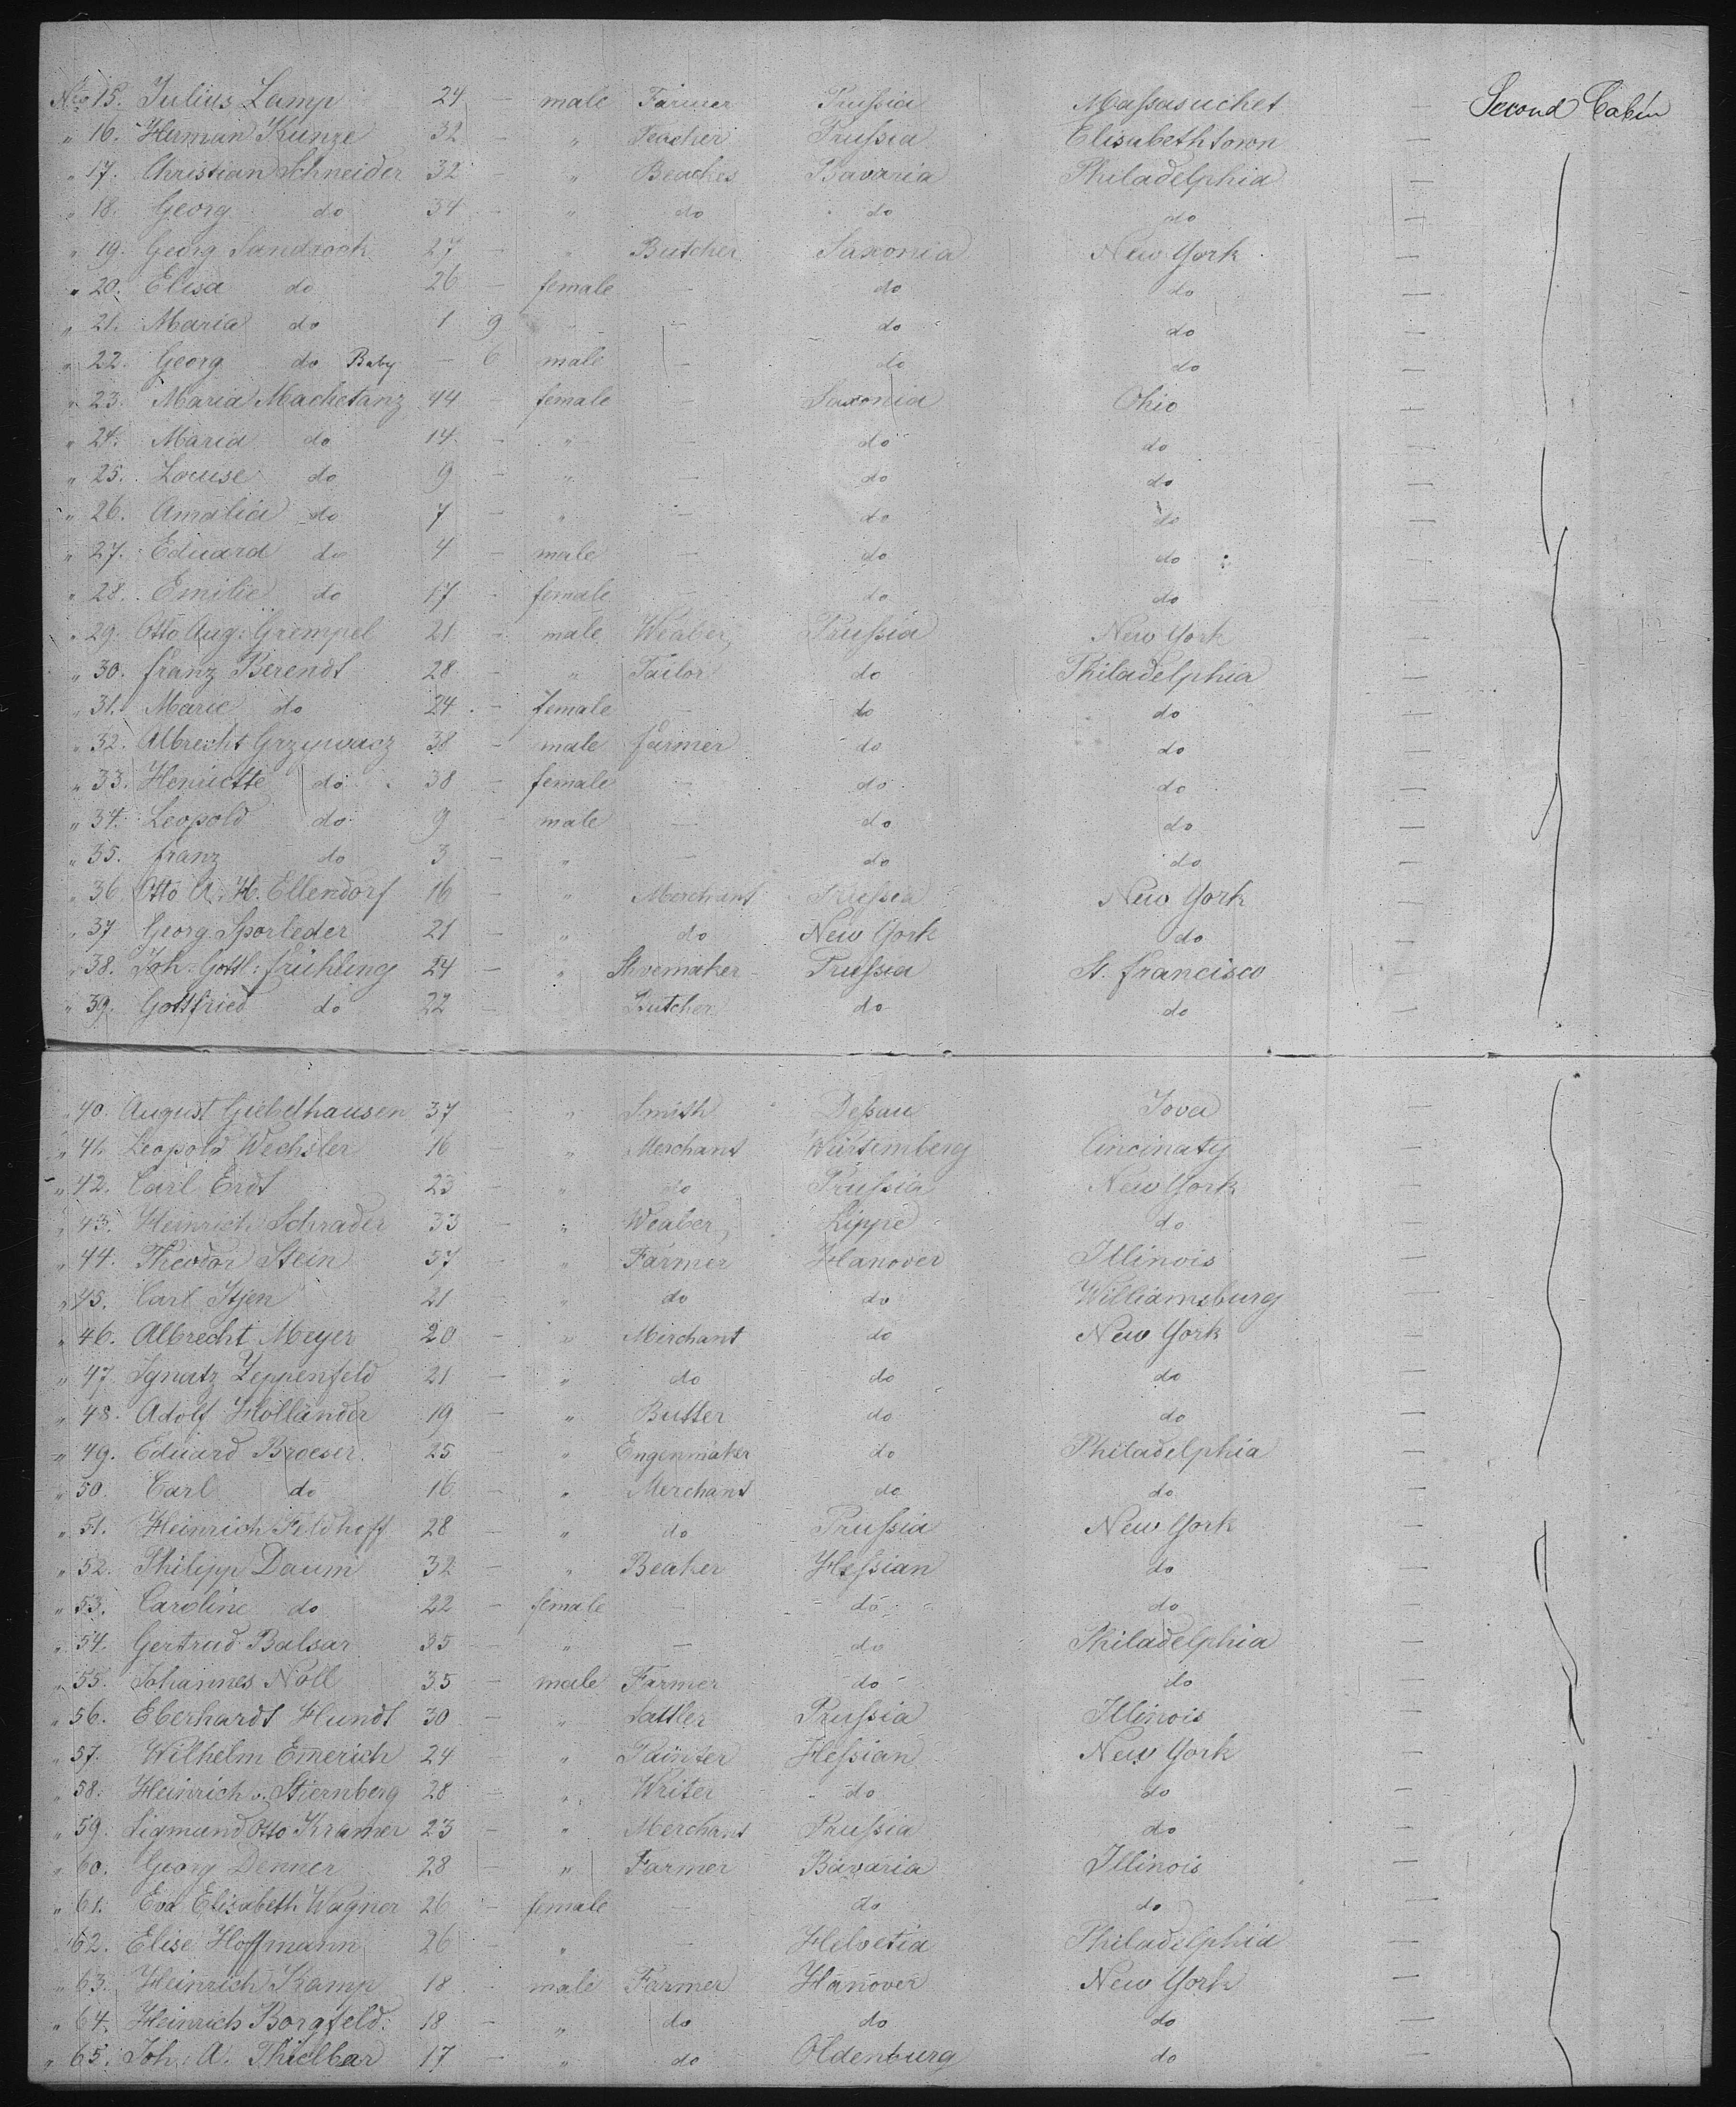 No 15. Julius Lamp 24 - male Farmer Prussia Massasuchet - Second Cabin
" 16. Herman Kunze 32 " Teacher Prussia Elisabethtown -
" 17. Christian Schneider 32 - " Beaches Bavaria Philadelphia -
" 18. Georg do 34 - " do do do -
" 19. Georg Sandrock 27 - " Butcher Saxonia New York -
" 20. Elisa do 26 - female - do do -
" 21. Maria do 1 9 " - do do -
" 22. Georg do Baby - 6 male - do do -
" 23. Maria Machetanz 44 - female - Saxonia Ohio -
" 24. Maria do 14 - " - do do -
" 25. Louise do 9 - " - do do -
" 26. Amalia do 7 - " - do do -
" 27. Eduard do 4 - male - do do -
" 28. Emilie do 17 - female - do do -
" 29. Otto Aug: Grempel 21 - male Weaber Prussia New York -
" 30. Franz Berendt 28 - " Tailor do Philadelphia -
" 31. Marie do 24 - female - do do -
" 32. Albrecht Grzywacz 38 - male farmer do do -
" 33. Henriette do 38 - female - do do -
" 34. Leopold do 9 - male - do do -
" 35. franz do 3 - " - do do -
" 36 Otto A. H. Ellendorf 16 - " Merchant Prussia New York -
" 37 Georg Sporleder 21 - " do New York do -
" 38. Joh: Gottl: Frühling 24 - " Shoemaker Prussia St. Francisco -
" 39. Gottfried do 22 - Butcher do do -
" 40. August Giebelhausen 37 - " Smith Dessau Iova -
" 41. Leopold Wechsler 16 - " Merchant Würtemberg Cincinaty -
" 42. Carl Erdt 23 - " do Prussia New York -
" 43. Heinrich Schrader 33 - " Weaber Lippe do -
" 44. Theodor Stein 37 - " Farmer Hanover Illinois -
" 45. Carl Itjen 21 - " do do Williamsburg -
" 46. Albrecht Meyer 20 - " Merchant do New York -
" 47. Ignatz Zeppenfeld 21 - " do do do -
" 48. Adolf Holländer 19 - " Butter do do -
" 49. Eduard Broeser 25 " Engenmaker do Philadelphia -
" 50. Carl do 16 - " Merchant do do -
" 51. Heinrich Feldhoff 28 - " do Prussia New York -
" 52. Philipp Daum 32 - " Beaker Hessian do -
" 53. Caroline do 22 - female - do do -
" 54. Gertrud Balsar 35 - " - do Philadelphia -
" 55. Johannes Noll 35 - male Farmer do do -
" 56. Eberhardt Hundt 30 - " Sattler Prussia Illinois -
" 57. Wilhelm Emerich 24 - " Painter Hessian New York -
" 58. Heinrich v. Stiernberg 28 - " Writer do do -
" 59. Sigmund Otto Kramer 23 - " Merchant Prussia do -
" 60. Georg Denner 28 - " Farmer Bavaria Illinois -
" 61. Eva Elisabeth Wagner 26 - female - do do -
" 62. Elise Hoffmann 26 - " - Helvetia Philadelphia -
" 63. Heinrich Kamp 18 - male Farmer Hanover New York -
" 64. Heinrich Borgfeld. 18 - " do do do -
" 65. Joh: A. Thielbar 17 - " do Oldenburg do -